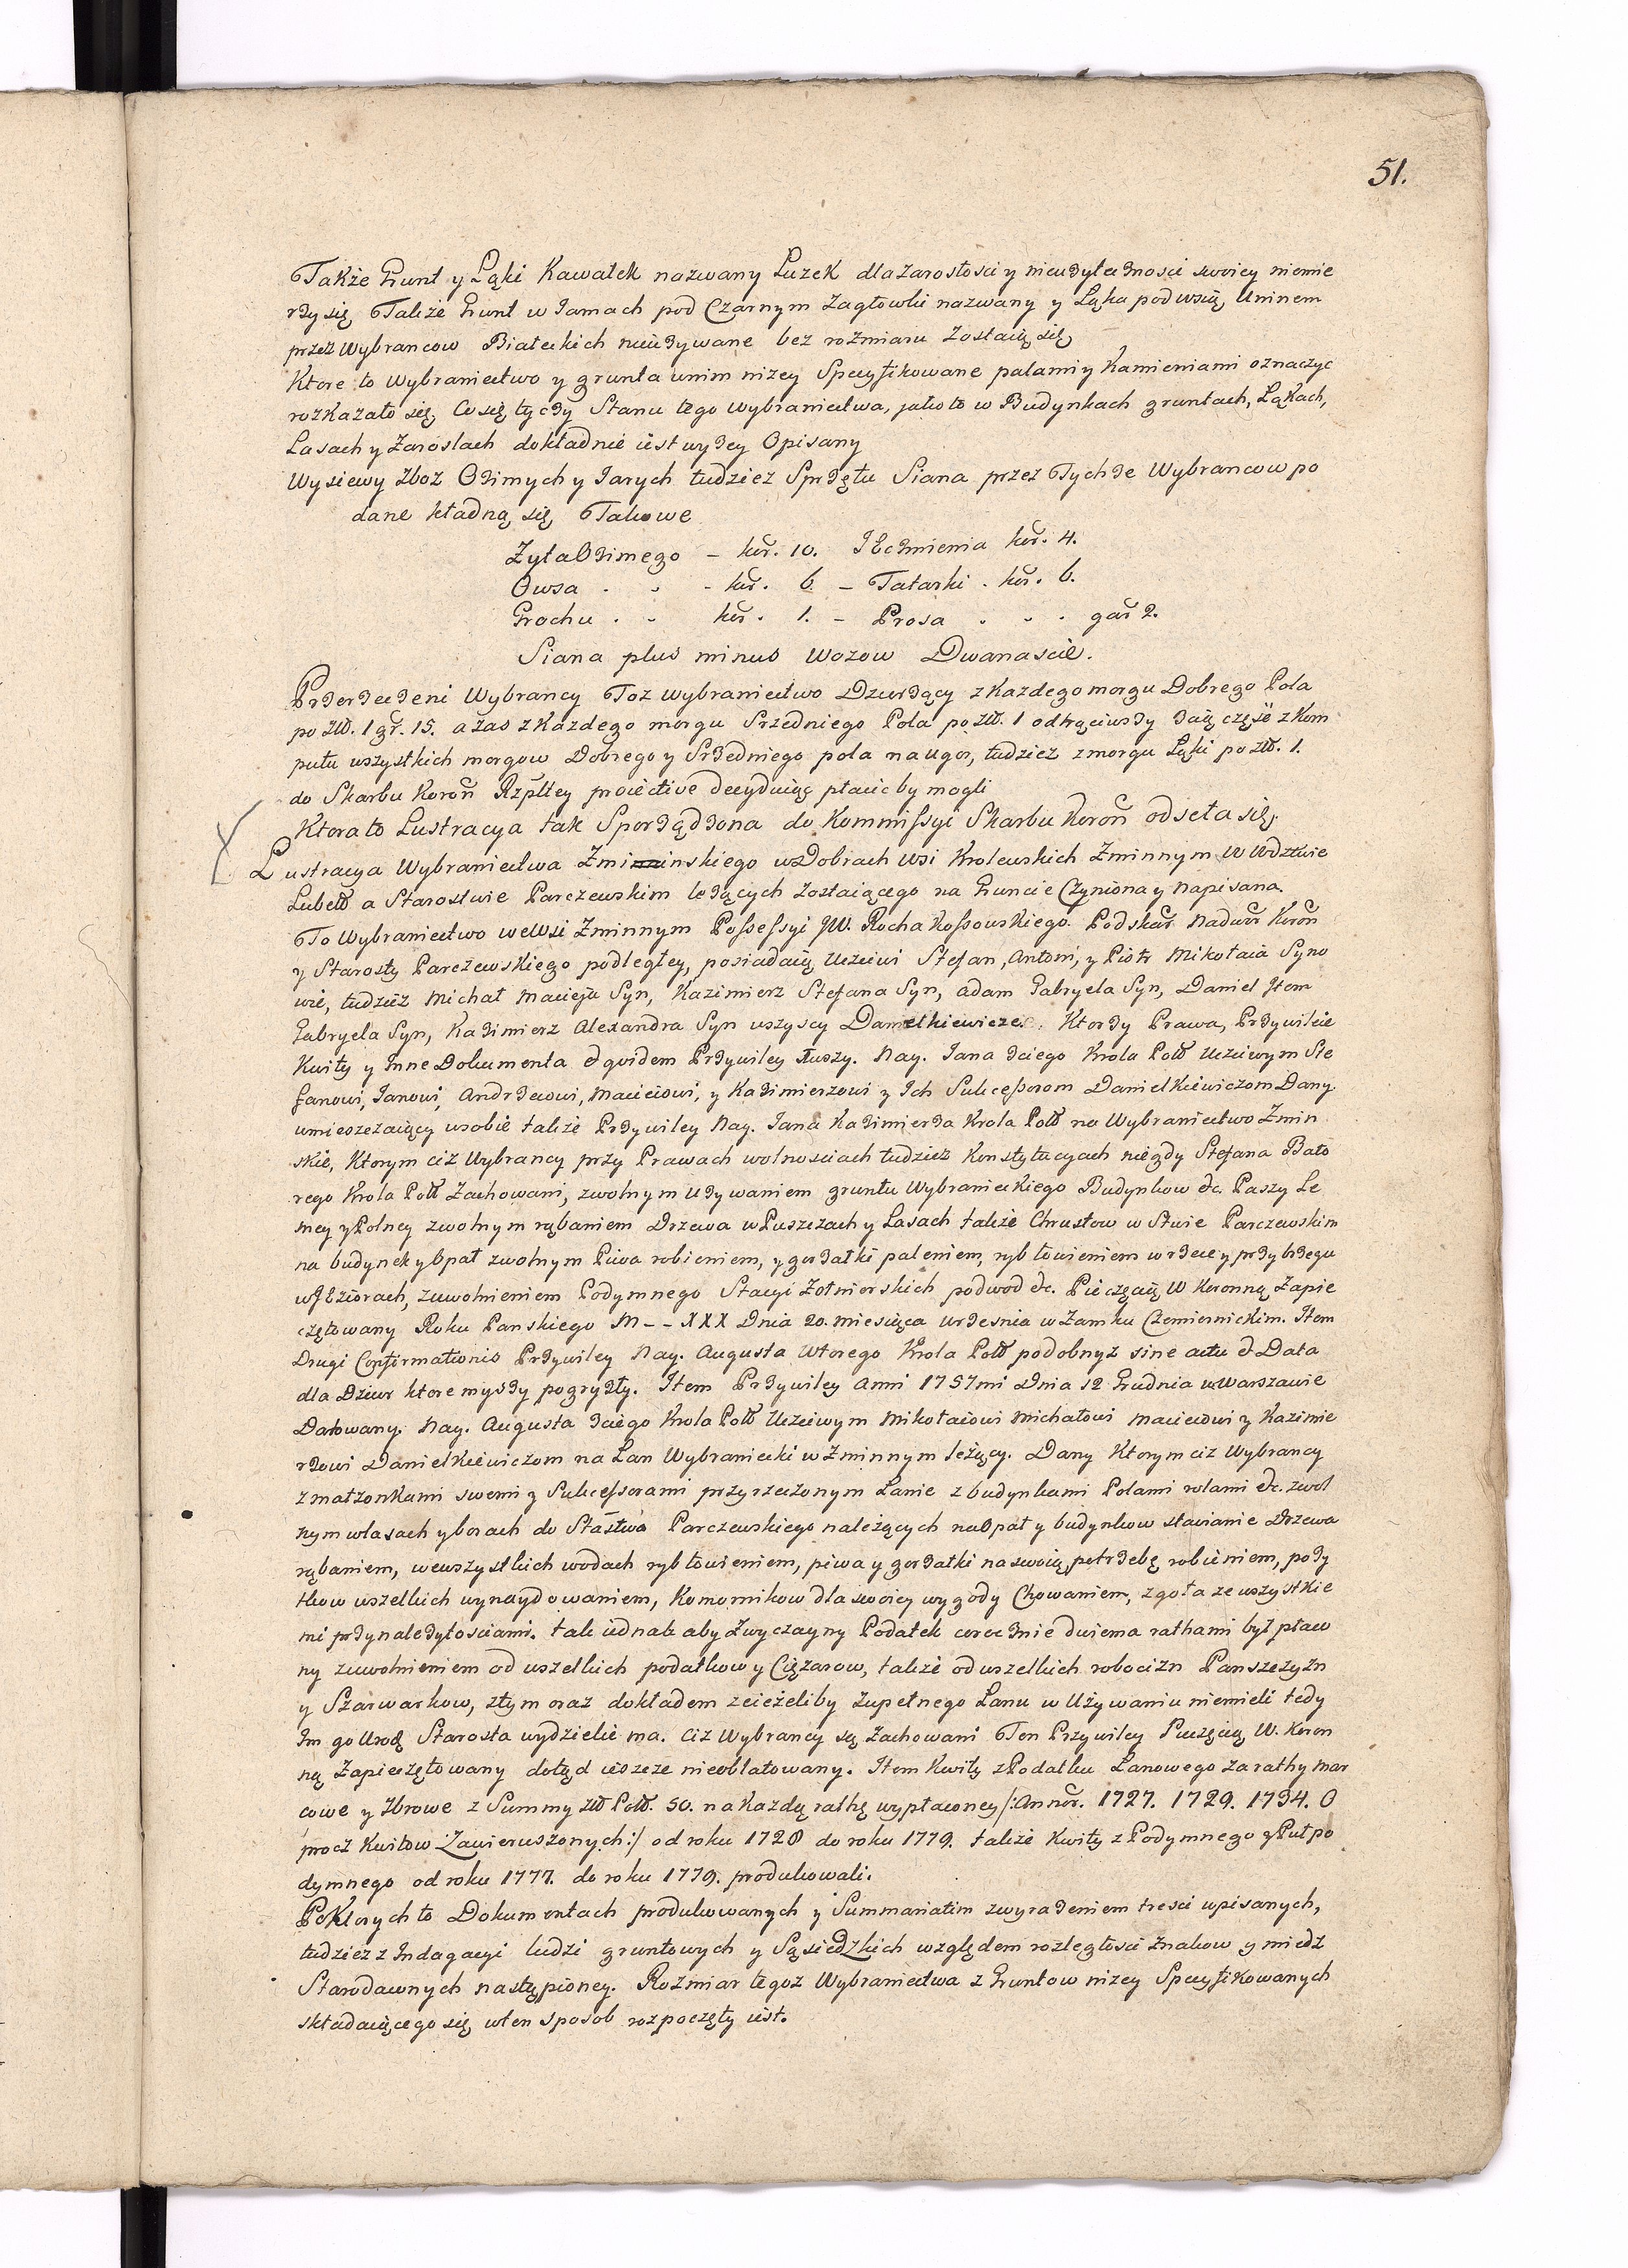 51.
Także Grunt y Łąki Kawałek nazwany Łuzek dla zarosłosci y nieużyteczności swoiey niemie
rzy się Także Grunt w Jamach pod Czarnym Zagłowki nazwany y Łąka pod wsią Uninem
przez Wybrancow Białeckich nieużywane bez rozmiaru zostaią się
Ktore to Wybraniectwo y grunta w nim niżey Specyfikowane palami y Kamieniami oznaczyc
rozkazało się, Co się tyczy Stanu tego Wybraniectwa, jako to w Budynkach gruntach, Łąkach,
Lasach y Zaroslach dokładnie iest wyżey Opisany
Wysiewy zboz Ozimych y Jarych tudziez Sprzętu Siana przez Tychże Wybrancow po
dane kładną się Takowe
Zyta Ozimego - kor. 10. Jęczmienia kor. 4.
Owsa . . - kor. 6 - Tatarki . kor. 6.
Grochu . . kor. 1. - Prosa . . . gar 2.
Siana plus minus wozow Dwanascie.
Przerzeczeni Wybrancy Toz wybraniectwo Dzierżący z Kazdego morgu Dobrego Pola
po złł. 1 gr. 15. a zas z Kazdego morgu Srzedniego Pola po złł. 1 odtrąciwszy 3cią część z Kom
putu wszystkich morgow Dobrego y Srzedniego pola na ugor, tudzież z morgu Łąki po złł. 1.
do Skarbu Koron Rzpltey proiective decyduiąc płacic by mogli
Ktora to Lustracya tak Sporządzona do Kommissyi Skarbu Koron odseła się.
Lustracya Wybraniectwa Zmininskiego w Dobrach Wsi Krolewskich Zminnym w Wdztwie
Lubell a Starostwie Parczewskim leżących zostaiącego na Gruncie Czyniona y Napisana.
To Wybraniectwo we Wsi Zminnym Possessyi JW. Rocha Kossowskiego Podskar. Nadwor Koron
y Starosty Parczewskiego podległey, posiadaią Uczciwi Stefan, Antoni, y Piotr Mikołaia Syno
wie, tudzież Michał Macieja Syn, Kazimierz Stefana Syn, Adam Gabryela Syn, Daniel Item
Gabryela Syn, Kazimierz Alexandra Syn wszyscy Danielkiewicze. Ktorzy Prawa, Przywileie
Kwity y Inne Dokumenta et quidem Przywiley Nay. Jana 3ciego Krola Poll Uczciwym Ste
fanowi, Janowi, Andrzeiowi, Macieiowi, y Kazimierzowi y Ich Sukcessorom Danielkiewiczom Dany
umieszczaiący w sobie także Przywiley Nay. Jana Kazimierza Krola Poll na Wybraniectwo Zmin
skie, Ktorym ciż Wybrancy przy Prawach wolnosciach tudziez Konstytucyach niegdy Stefana Bato
rego Krola Poll Zachowani, z wolnym używaniem gruntu Wybranieckiego Budynkow &c. Paszy Le
sney y Polney z wolnym rąbaniem Drzewa w Puszczach y Lasach także Chrustow w Stwie Parczewskim
na budynek y Opał z wolnym Piwa robieniem, y gorzałki paleniem, ryb łowieniem w rzece y przy brzegu
w Jeziorach, z uwolnieniem Podymnego Stacyi Zołnierskich podwod &c. Pieczęcią W Koronną Zapie
czętowany Roku Panskiego M - - XXX Dnia 20. miesiąca Wrzesnia w Zamku Czemiernickim. Item
Drugi Confirmationis Przywiley Nay. Augusta Wtorego Krola Poll podobnyż sine actu et Data
dla Dziur ktore myszy pogryzły. Item Przywiley Anni 1757mi Dnia 12 Grudnia w Warszawie
Datowany. Nay. Augusta 3ciego Krola Poll Uczciwym Mikołaiowi Michałowi Macieiowi y Kazimie
rzowi Danielkiewiczom na Łan Wybraniecki w Zminnym leżący. Dany Ktorym ciż Wybrancy
z małżonkami swemi y Sukcessorami przy rzeczonym Łanie z budynkami Polami rolami &c. z wol
nym w lasach y borach do Stastwa Parczewskiego należących na Opał y budynkow stawianie Drzewa
rąbaniem, we wszystkich wodach ryb łowieniem, piwa y gorzałki na swoią potrzebę robieniem, poży
tkow wszelkich wynaydowaniem, Komornikow dla swoiey wygody Chowaniem, zgoła ze wszystkie
mi przynależytosciami. tak iednak aby Zwyczayny Podatek corocznie dwiema rathami był płaco
ny z uwolnieniem od wszelkich podatkow y Ciężarow, także od wszelkich robocizn Panszczyzn
y Szarwarkow, z tym oraz dokładem ze ieżeliby zupełnego Łanu w Używaniu niemieli tedy
Im go Urodz Starosta wydzielic ma. Ciż Wybrancy są Zachowani Ten Przywiley Pieczęcią W. Koron
ną Zapieczętowany dotąd ieszcze nieoblatowany. Item Kwity z Podatku Łanowego za rathy Mar
cowe y 7browe z Summy złł Poll. 50. na Kazdą rathę wypłaconey /: Annor. 1727. 1729. 1734. O
procz Kwitow Zawieruszonych :/ od roku 1728 do roku 1779. także Kwity z Podymnego y Puł po
dymnego od roku 1777. do roku 1779. produkowali.
Po Ktorych to Dokumentach produkowanych y Summariatim z wyrażeniem tresci wpisanych,
tudzież z Indagacyi ludzi gruntowych y Sąsiedzkich względem rozległosci Znakow y miedz
Starodawnych nastąpioney. Rozmiar tegoż Wybraniectwa z Gruntow niżey Specyfikowanych
składaiącego się w ten sposob rozpoczęty iest.